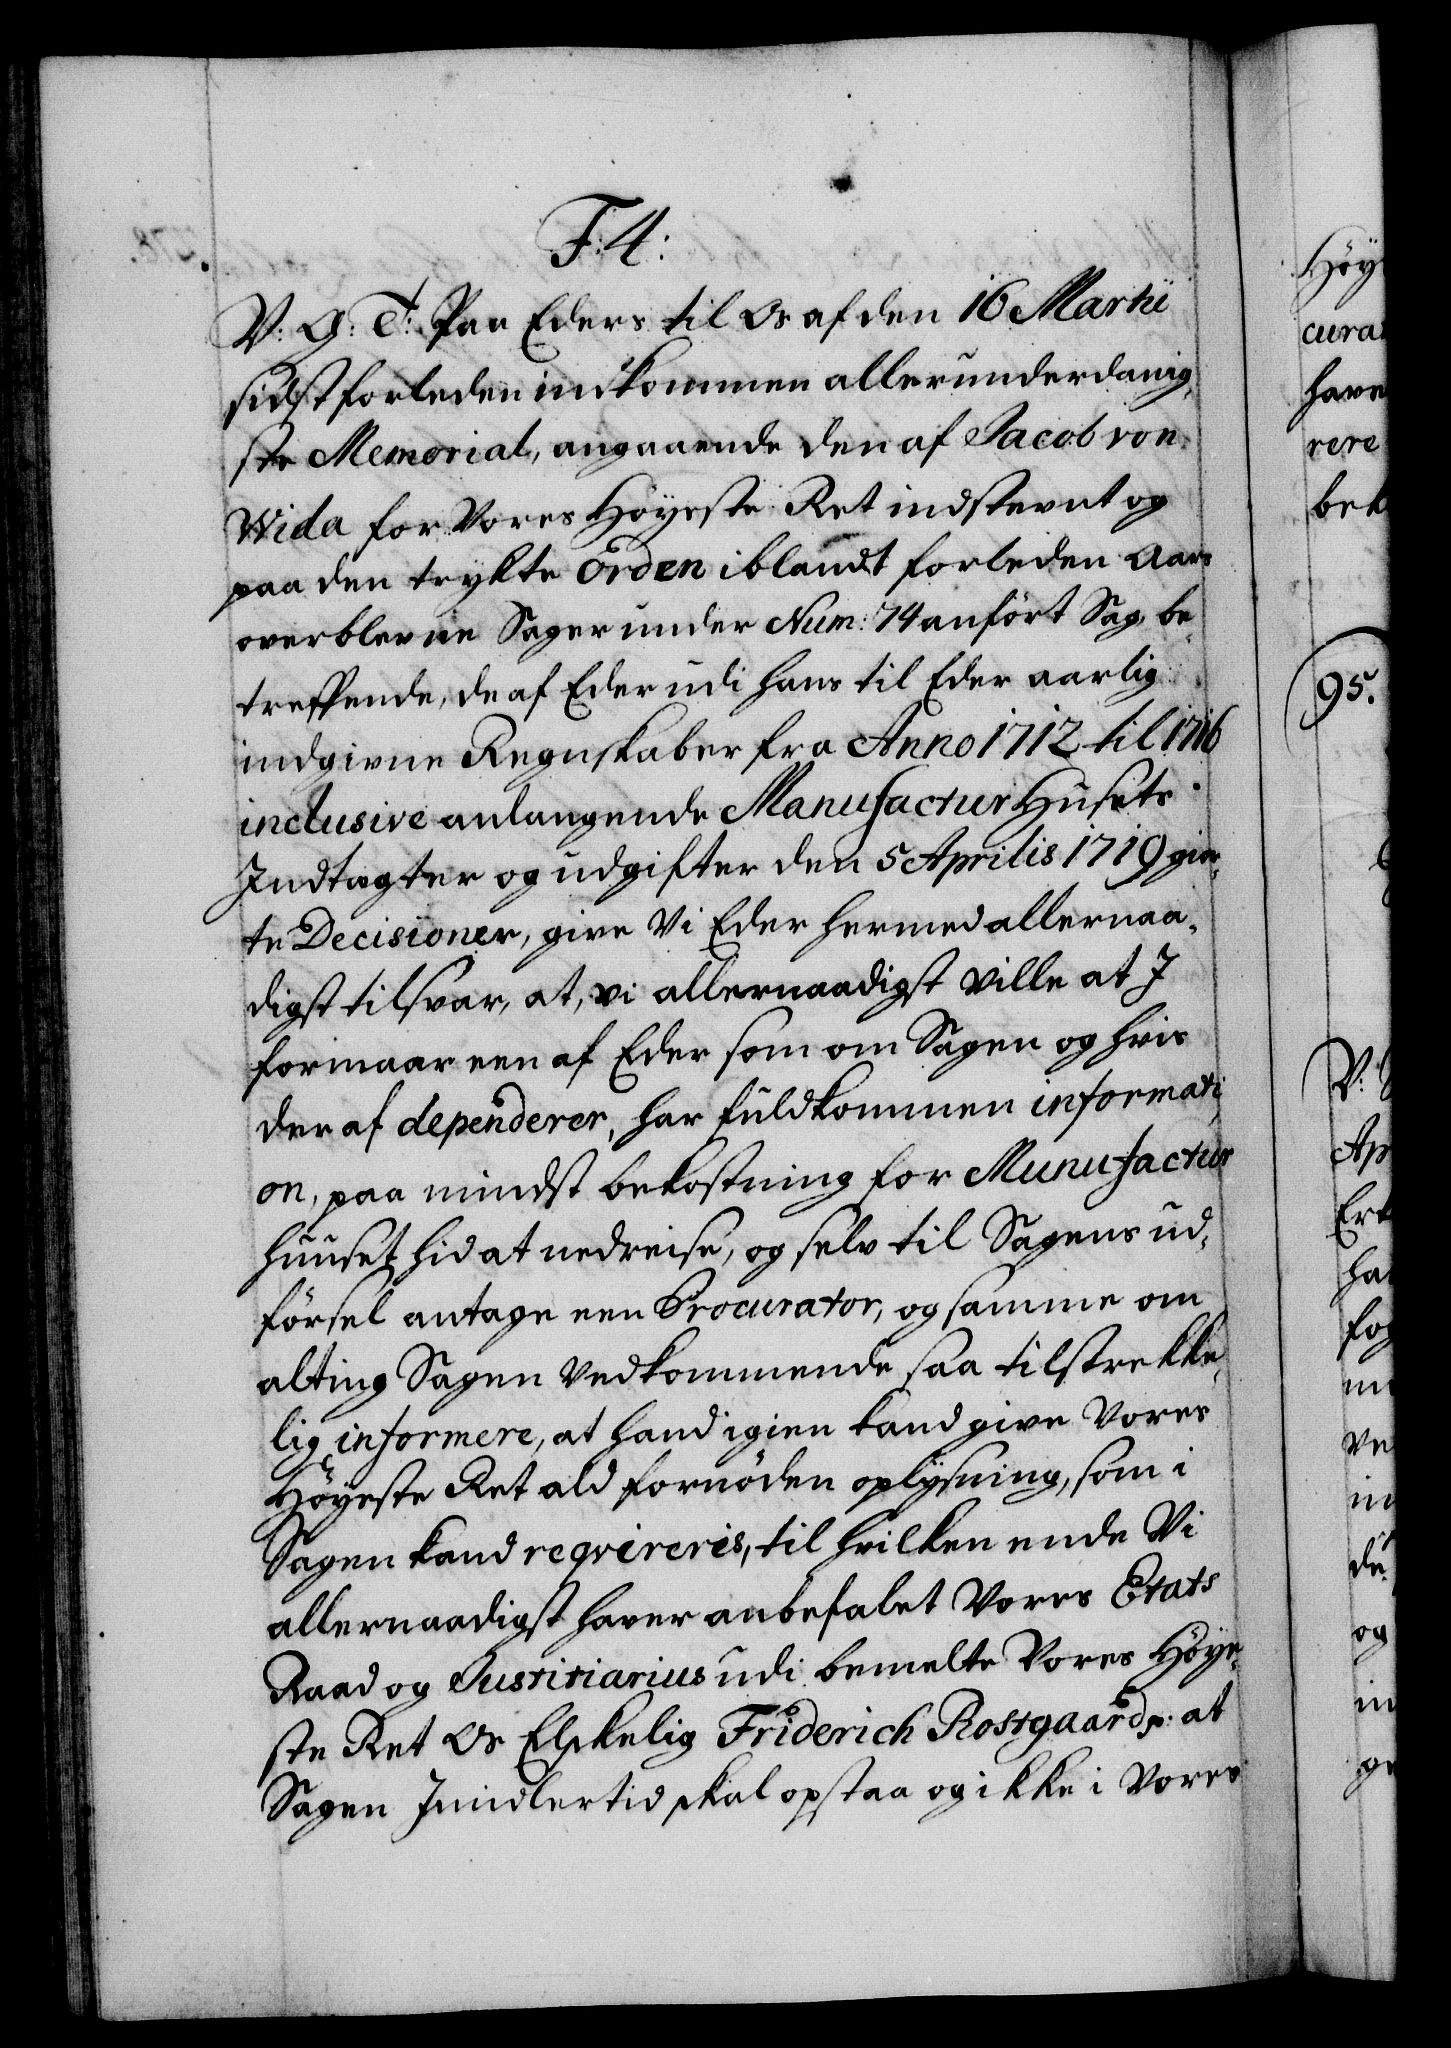 F: 4:
V: G: T: Paa Eders til Os af den 16 Martii
sidstforleden indkommen allerunderdanig,
ste Memorial, angaaende den af Jacob von
Wida for Vores Höyeste Ret indstevnt og
paa den trykte Orden iblandt forleden Aars
overblevne Sager under Num: 74 anfört Sag, be,
treffende, de af Eder udi hans til Eder aarlig
indgivne Regnskaber fra Anno 1712 til 1716
inclusive anlangende Manufactur Husets
Indtægter og udgifter den 5 Aprilis 1719 gior,
te Decisioner, give Vi Eder hermed allernaa,
digst tilsvar, at, vi allernaadigst ville at I
formaar een af Eder som om Sagen og hvis
der af dependerer, har fuldkommen informati,
on, paa mindst bekostning for Manufactur
huuset hid at nedreise, og selv til Sagens ud,
försel antage een Procurator, og samme om
alting Sagen vedkommende saa tilstrekke,
lig informere, at hand igien kand give Vores
Höyeste Ret ald fornöden oplysning, som i
Sagen kand reqvireris, til hvilken ende Vi
allernaadigst haver anbefalet Vores Etats
Raad og Justitiarius udi bemelte Vores Höye,
ste Ret Os Elskelig Friderich Rostgaard p: at
Sagen Jmidlertid skal opstaa og ikke i Vores
Höy
cura
have
rere
bek
95.
V:
Ap
ha
fog
ve
in
de
og
in